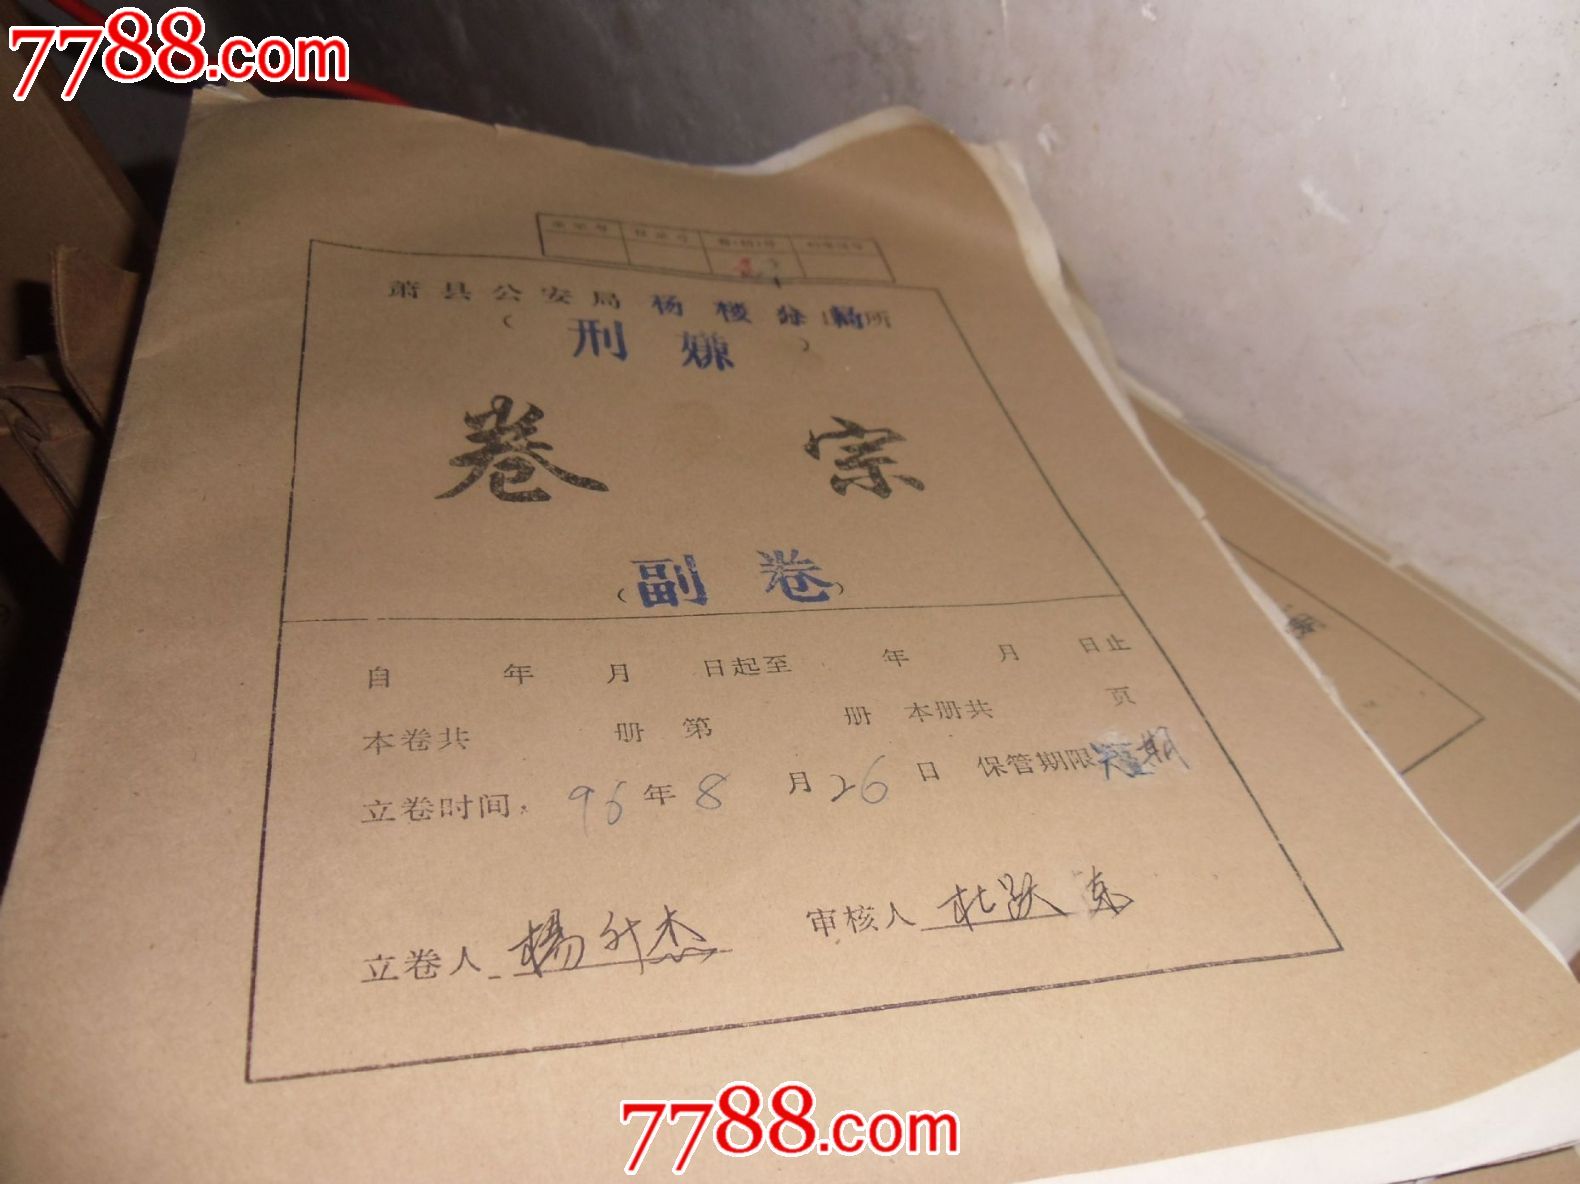 7788.com
全宗号 目录号 案卷号
萧县公安局杨楼分局所
（刑嫌）
卷宗
（副卷）
自 年 月 日起至 年 月 日止
本卷共 册 第 册 本册共 页
立卷时间： 96年8月26日 保管期限短期
立卷人 楊升杰 审核人 杜跃东
7788.com